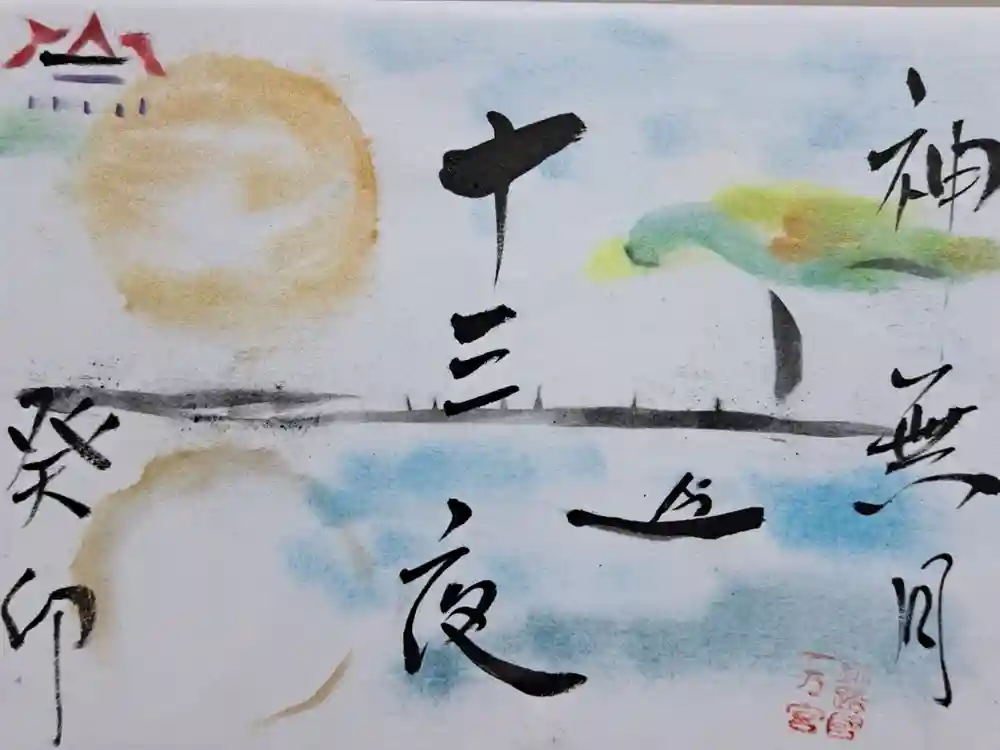 神無月
十三夜
癸卯